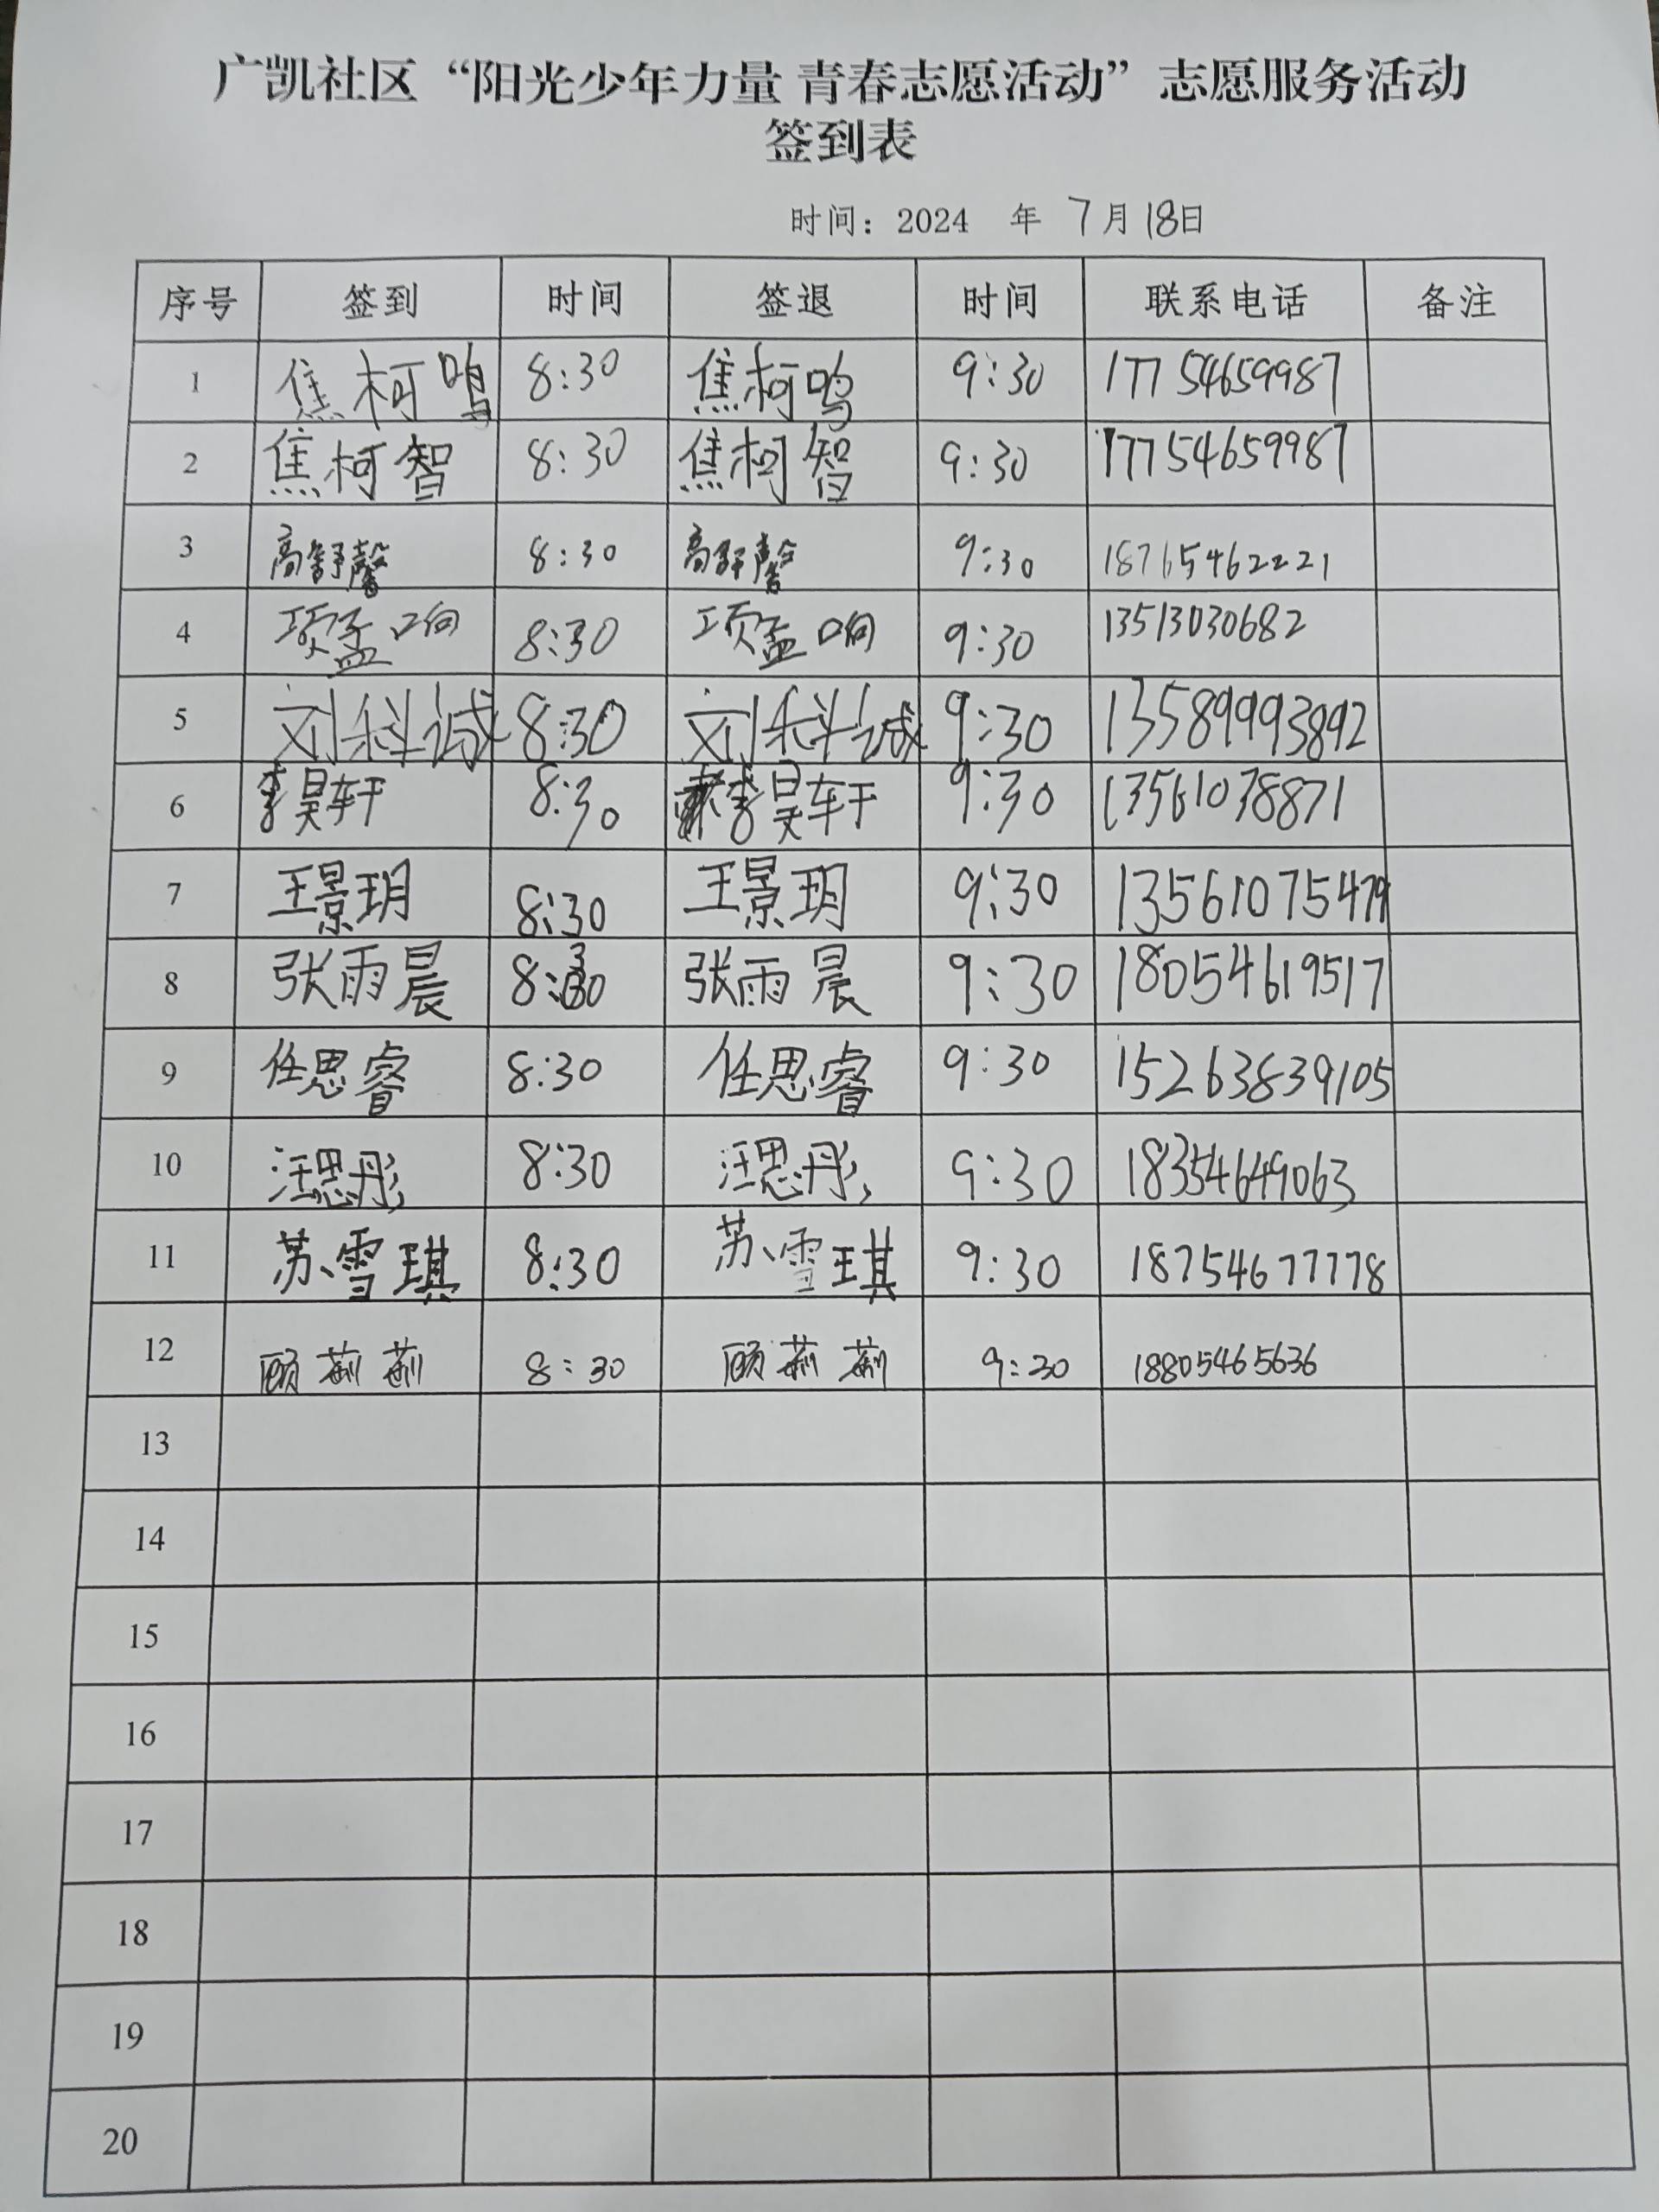 广凯社区“阳光少年力量 青春志愿活动”志愿服务活动
签到表
时间：2024 年 7月18日
序号 签到 时间 签退 时间 联系电话 备注
1 焦柯鸣 8:30 焦柯鸣 9:30 17754659987
2 焦柯智 8:30 焦柯智 9:30 17754659987
3 高舒馨 8:30 高舒馨 9:30 18765462221
4 项孟响 8:30 项孟响 9:30 13513030682
5 刘科诚 8:30 刘科诚 9:30 13589993892
6 李昊轩 8:30 李昊轩 9:30 13561078871
7 王景玥 8:30 王景玥 9:30 13561075479
8 张雨晨 8:30 张雨晨 9:30 18054619517
9 任思睿 8:30 任思睿 9:30 15263839105
10 汪思彤 8:30 汪思彤 9:30 18354649063
11 苏雪琪 8:30 苏雪琪 9:30 18754677778
12 顾 8:30 顾 9:30 18805465636
13
14
15
16
17
18
19
20